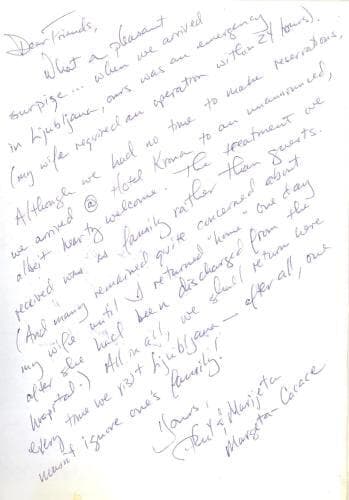 Dear Friends,
What a pleasant
surpise... when we arrived
in Ljubljana, ours was an emergency
(my wife required an operation within 24 hours).
Although we had no time to make reservations,
we arrived @ Hotel Kroma to an unannounced,
albeit hearty welcome. The treatment we
received was as family rather than guests.
(And many remained quite concerned about
my wife until I returned "home" one day
after she had been discharged from the
hospital.) All in all, we shall return here
every time we visit Ljubljana — after all, one
mustn't ignore one's family!
Yours,
& Marijeta
Margeta-Cacace